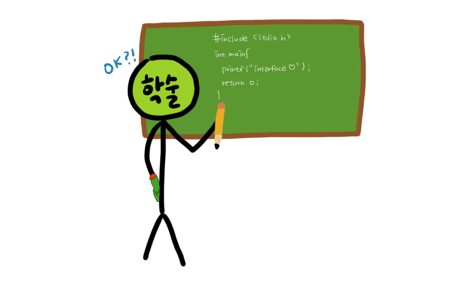 OK?!
학술
#include <stdio.h>
int main{
printf("interface♡");
return 0;
}